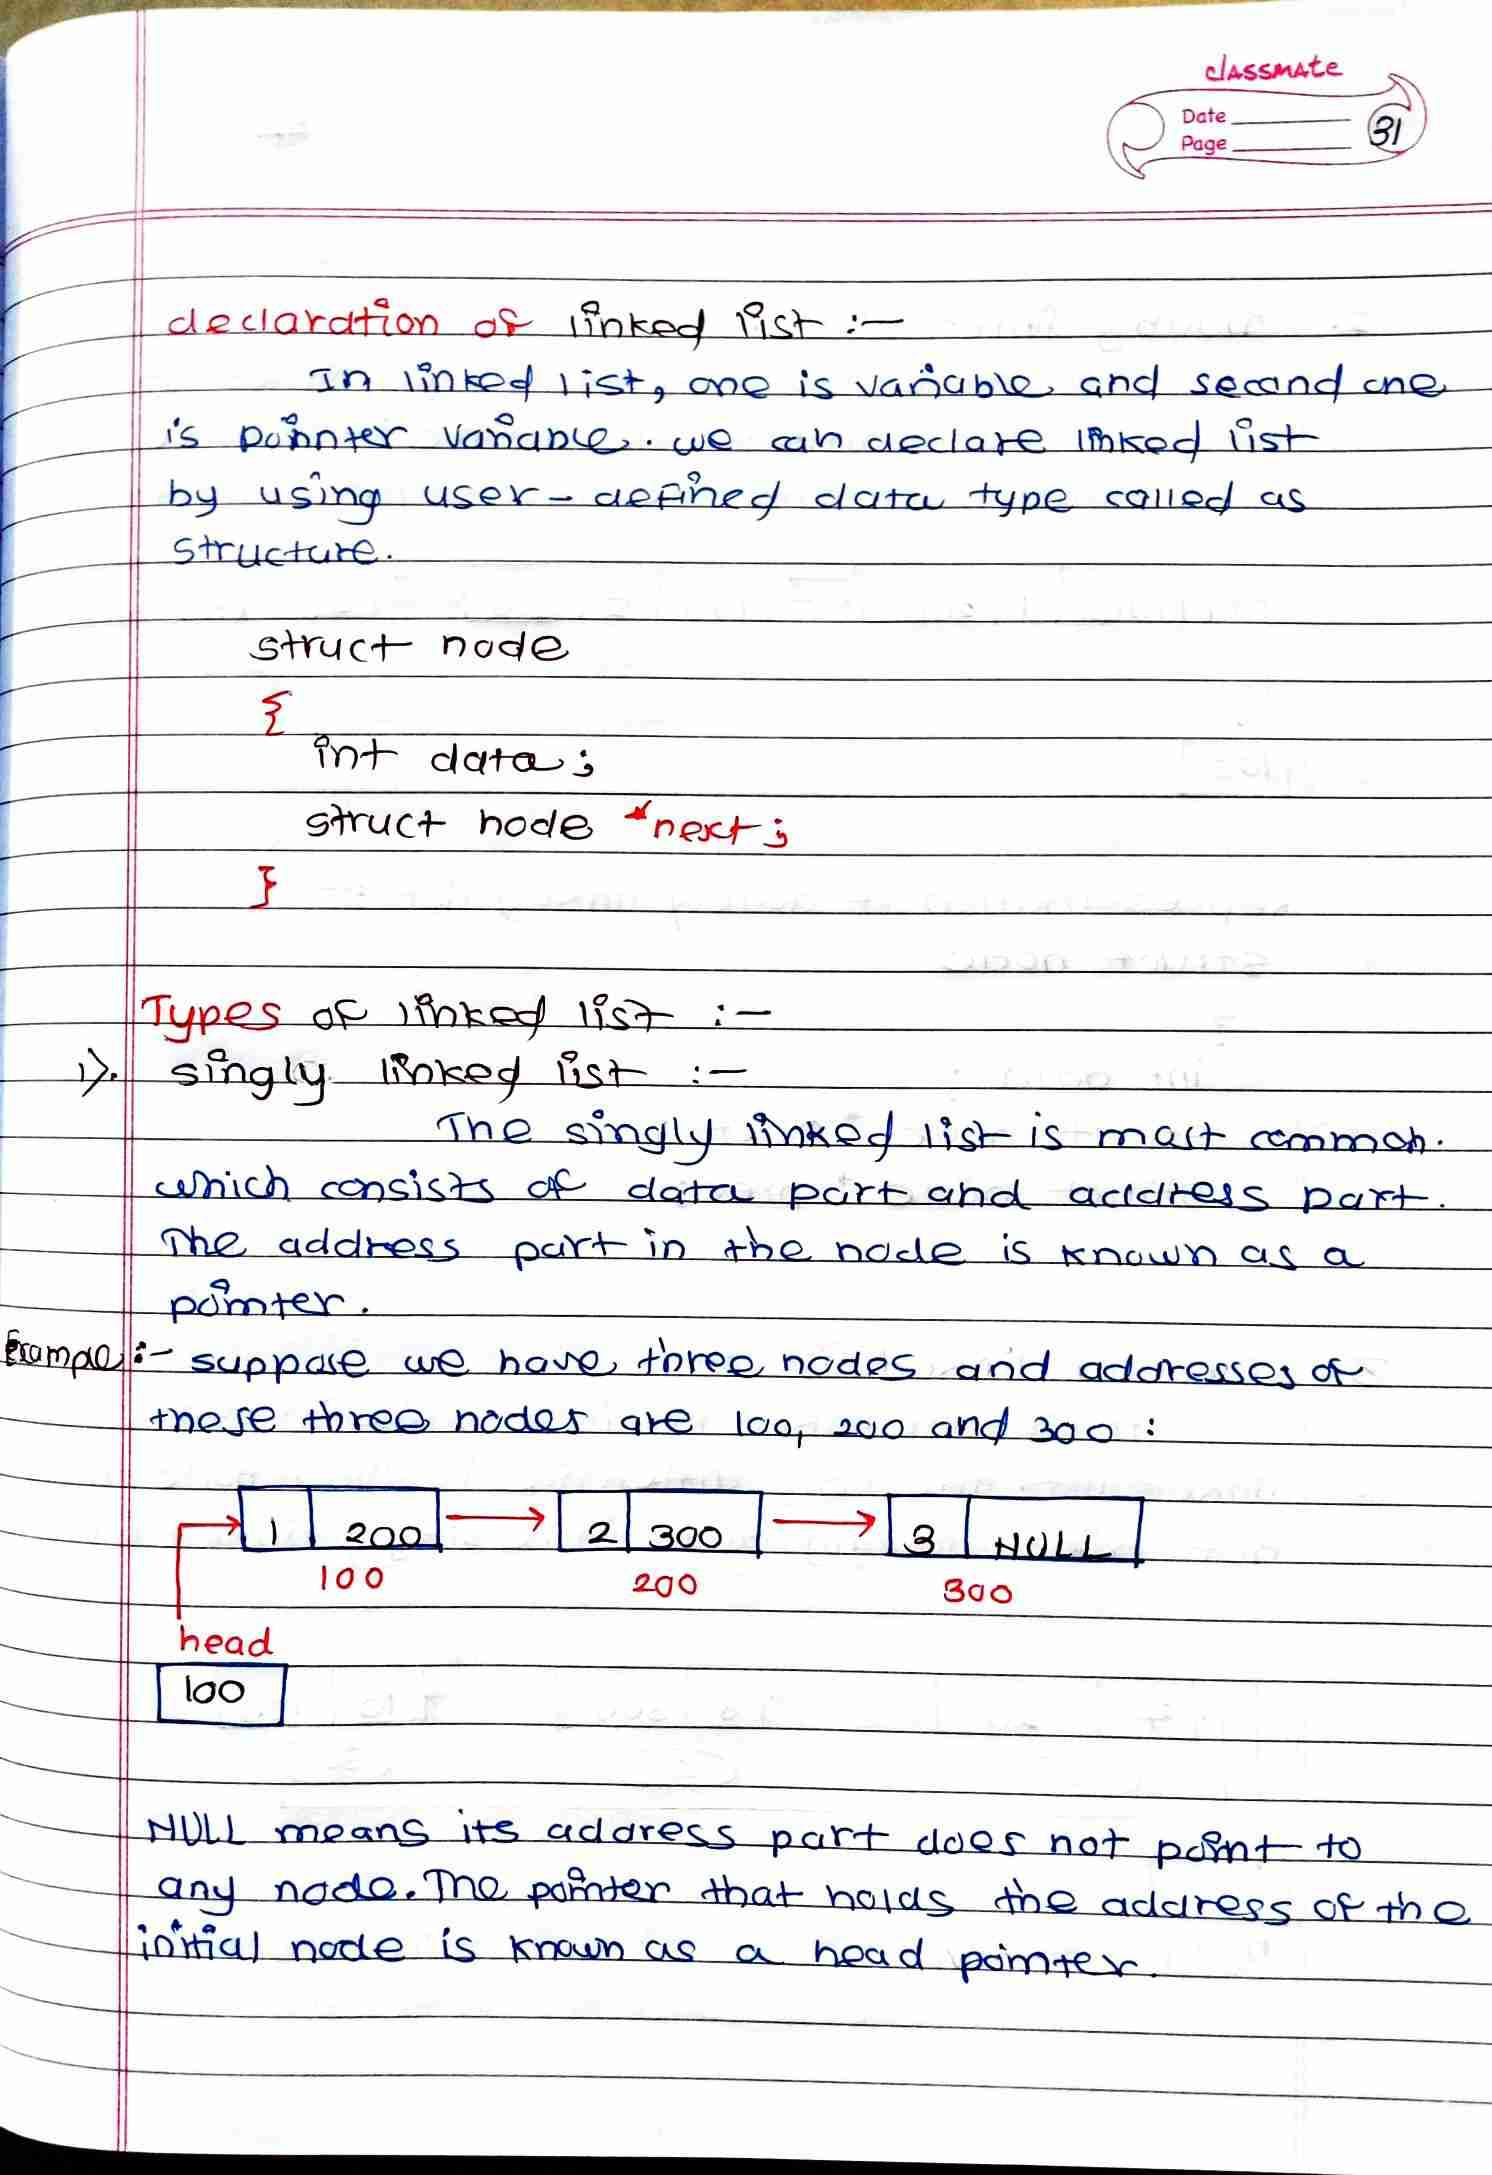 classmate
Date
Page
31
declaration of linked list :-
In linked list, one is variable and second one
is pointer variable. we can declare linked list
by using user-defined data type called as
structure.
struct node
{
int data;
struct node *next;
}
Types of linked list :-
1). singly linked list :-
The singly linked list is most common.
which consists of data part and address part.
The address part in the node is known as a
pointer.
Example :- suppose we have three nodes and addresses of
these three nodes are 100, 200 and 300 :
1 200 2 300 3 NULL
100 200 300
head
100
NULL means its address part does not point to
any node. The pointer that holds the address of the
initial node is known as a head pointer.